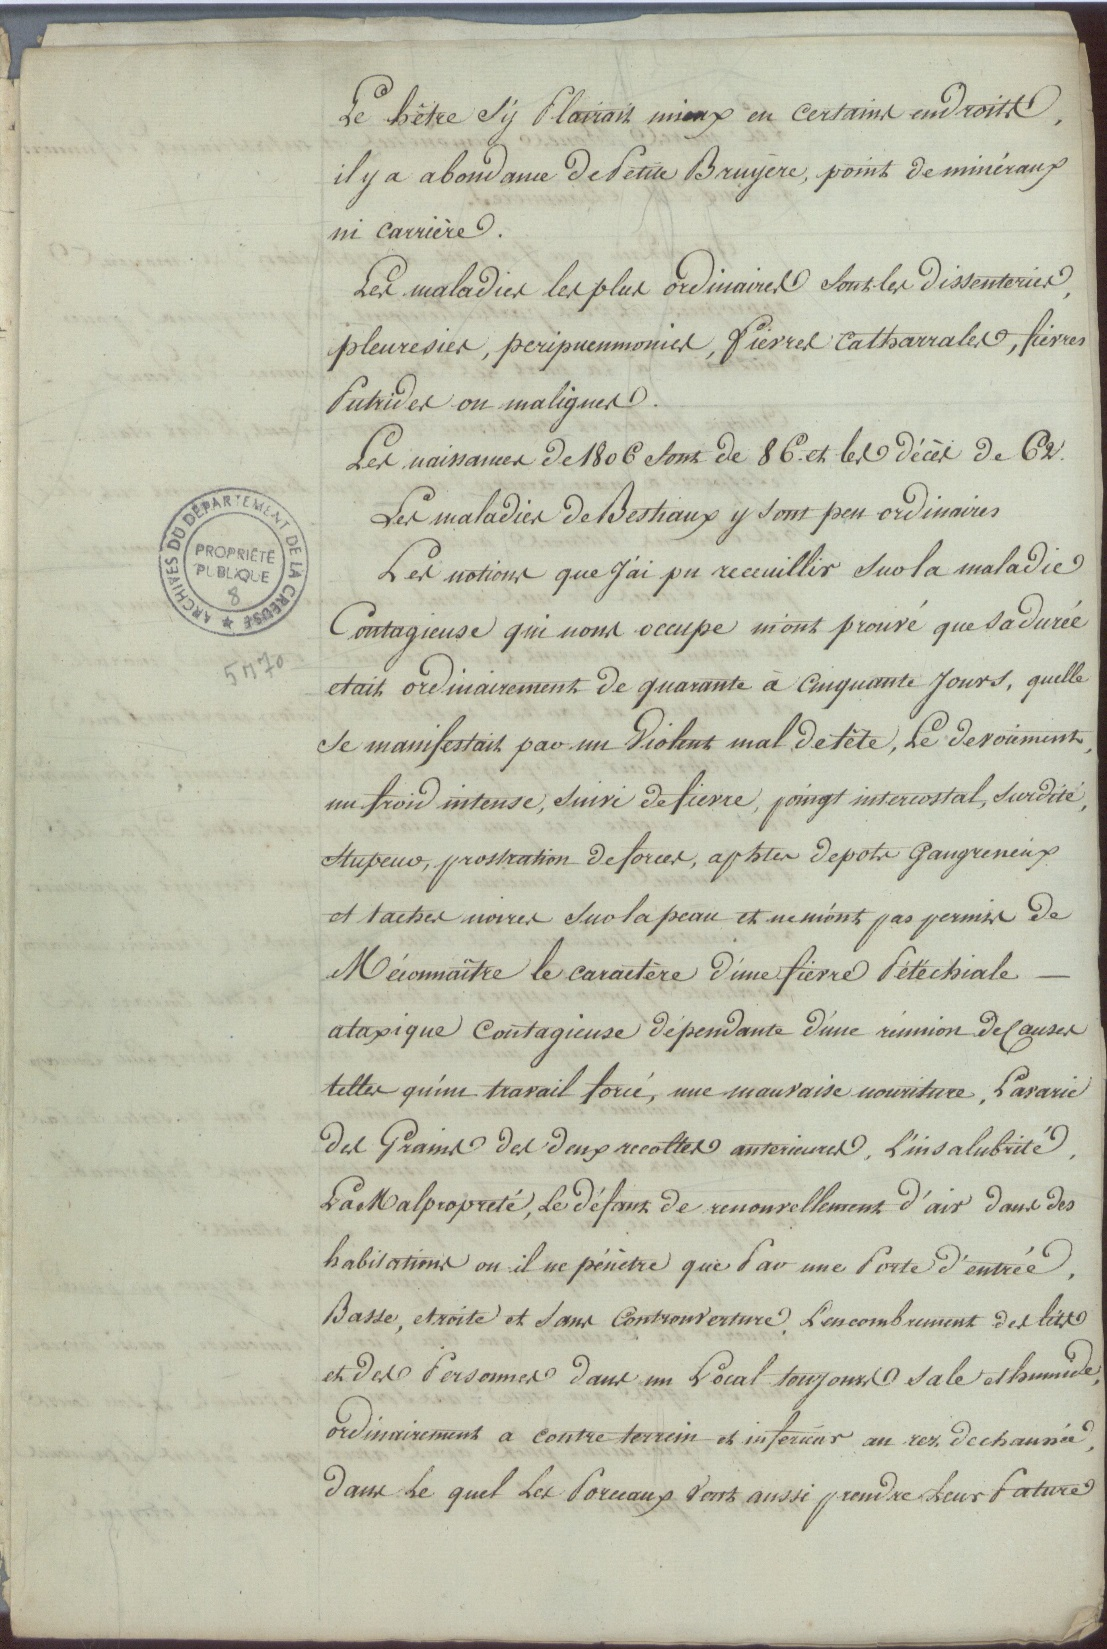 Le hêtre s'y Plairait mieux en certains endroits,
il y a abondance de Petite Bruyère, point de minéraux
ni carrière.
Les maladies les plus ordinaires sont les dissenteries,
pleuresies, peripneumonies, fièvres catharrales, fièvres
Putrides ou malignes.
Les naissances de 1806 sont de 86 et les décès de 62.
Les maladies de Bestiaux y sont peu ordinaires
Les notions que J'ai pu receuillir sur la maladie
Contagieuse qui nous occupe m'ont prouvé que sa durée
etait ordinairement de quarante à cinquante Jours, quelle
se manifestait par un Violent mal de tête, Le devoiment,
un froid intense, suivi de fievre, poingt intercostal, surdité,
stupeur, prostration de forces, aphtes depots Gangreneux
et taches noires sur la peau et ne m'ont pas permis de
Méconnaître le caractère d'une fievre Pétéchiale —
ataxique Contagieuse dépendante d'une réunion de Causes
telles qu'un travail forcé, une mauvaise nouriture, L'avarie
des Grains des deux recoltes anterieures, L'insalubrité,
La Malpropreté, Le défaut de renouvellement d'air dans des
habitations ou il ne pénètre que Par une Porte d'entrée,
Basse, etroite et sans Controuverture, L'encombrement des lits
et des Personnes dans un Local toujours sale et humide,
ordinairement a contre terrein et inferieur au rez de chaussée,
dans Le quel Les Porceaux Vont aussi prendre Leur Pature
ARCHIVES DU DÉPARTEMENT DE LA CREUSE
PROPRIÉTÉ
PUBLIQUE
8